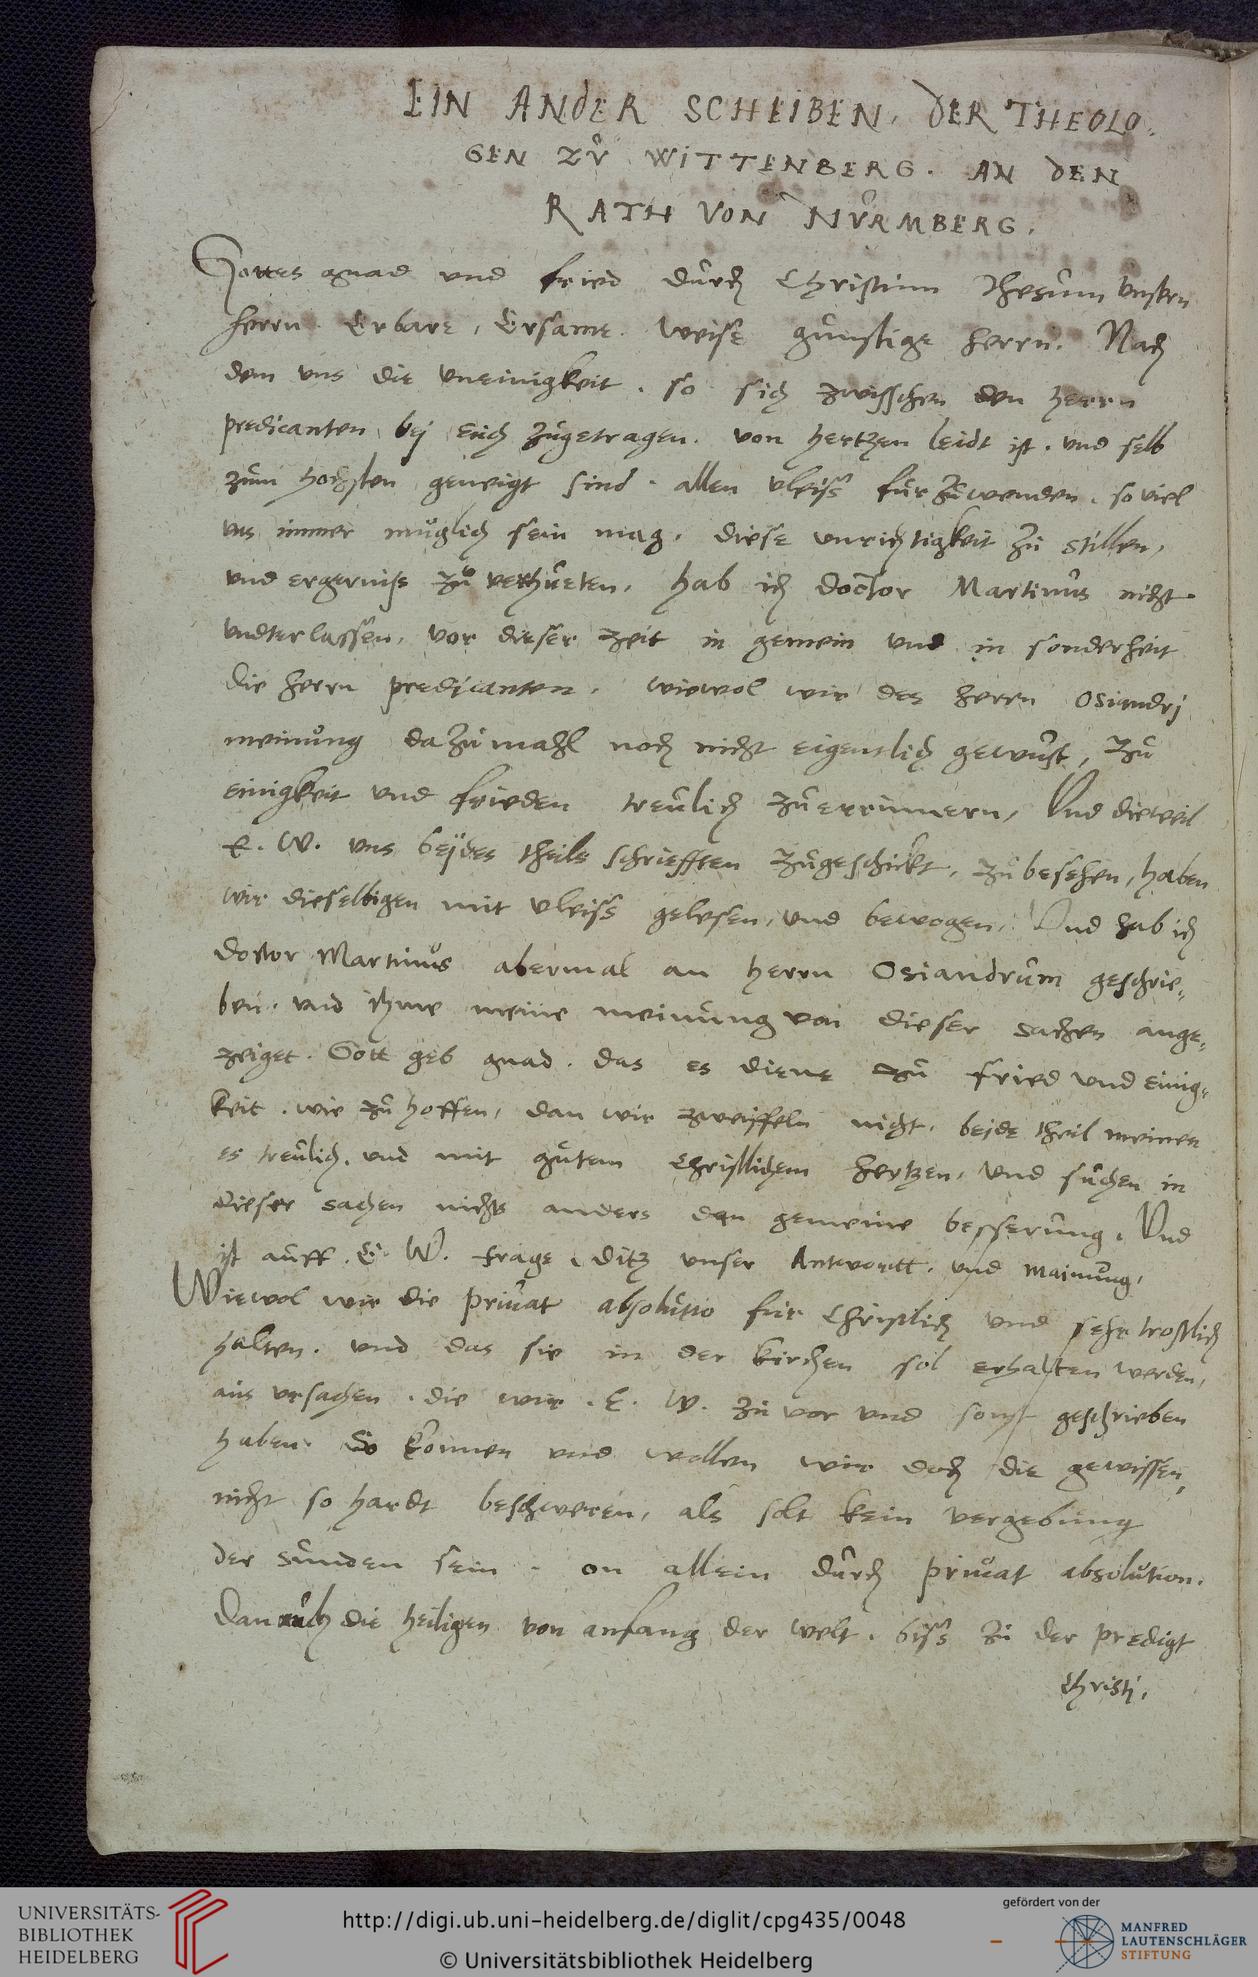 EIN ANDER SCHEIBEN, DER THEOLO-
GEN ZŮ WITTENBERG. AN DEN
RATH VON NŮRMBERG.
Gottes gnad und fried durch Christum Jhesum unsern
herrn. Erbare, Ersame. weise günstige herrn. Nach
dem uns die uneinigkeit. so sich zwisschen den herrn
predicanten bej euch zugetragen. von hertzen leidt ist. und selb
zum hochsten geneigt sind. allen vleiss fur zuwenden. so viel
uns immer muglich sein mag. diese unrichtigkeit zu stillen,
und ergerniss zů verhueten. hab ich doctor Martinus nicht
undterlassen, vor dieser zeit in gemein und in sonderheit
die herrn predicanten. wiewol wir des herrn Osiandrj
meinung dazumahl noch nicht eigentlich gewust, zu
einigkeit und frieden treulich zu errinnern, Und dieweil
E. W. uns beÿdes theils schriefften zugeschickt, zu besehen, haben
wir dieselbigen mit vleiss gelesen, und bewogen, Und hab ich
doctor Martinus abermal an herrn Osiandrum geschrie-
ben. und ihme meine meinung von dieser sachen ange-
zeiget. Gott geb gnad. das es diene zu fried und einig-
keit. wie zu hoffen, dan wir zweiffeln nicht. beide theil meinen
es treulich. und mit gutem Christlichem hertzen, und suchen in
dieser sachen nichts anders dan gemeine besserung. Und
ist auff. E. W. frage, ditz unser Antwortt. und mainung,
Wiewol wir die priuat absolutio fur Christlich und sehr trostlich
halten. und das sie in der kirchen sol erhalten werden,
aus ursachen. die wir. E. W. zu vor und sonst geschrieben
haben. So konnen und wollen wir doch die gewissen,
nicht so hardt beschweren, als solt kein vergebung
der sunden sein. on allein durch priuat absolution.
Dan auch die heiligen von anfang der welt. biss zu der predigt
Christi,
UNIVERSITÄTS-
BIBLIOTHEK
HEIDELBERG
http://digi.ub.uni-heidelberg.de/diglit/cpg435/0048
© Universitätsbibliothek Heidelberg
gefördert von der
MANFRED
LAUTENSCHLÄGER
STIFTUNG